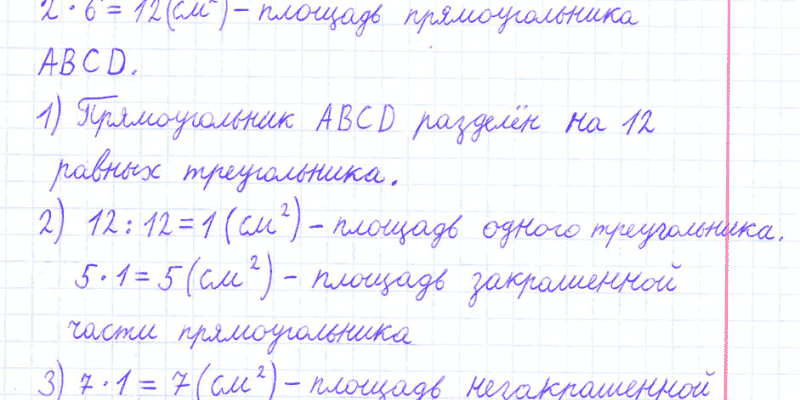 2 · 6 = 12 (см²) – площадь прямоугольника
ABCD.
1) Прямоугольник ABCD разделён на 12
равных треугольника.
2) 12 : 12 = 1 (см²) – площадь одного треугольника.
5 · 1 = 5 (см²) – площадь закрашенной
части прямоугольника
3) 7 · 1 = 7 (см²) – площадь незакрашенной